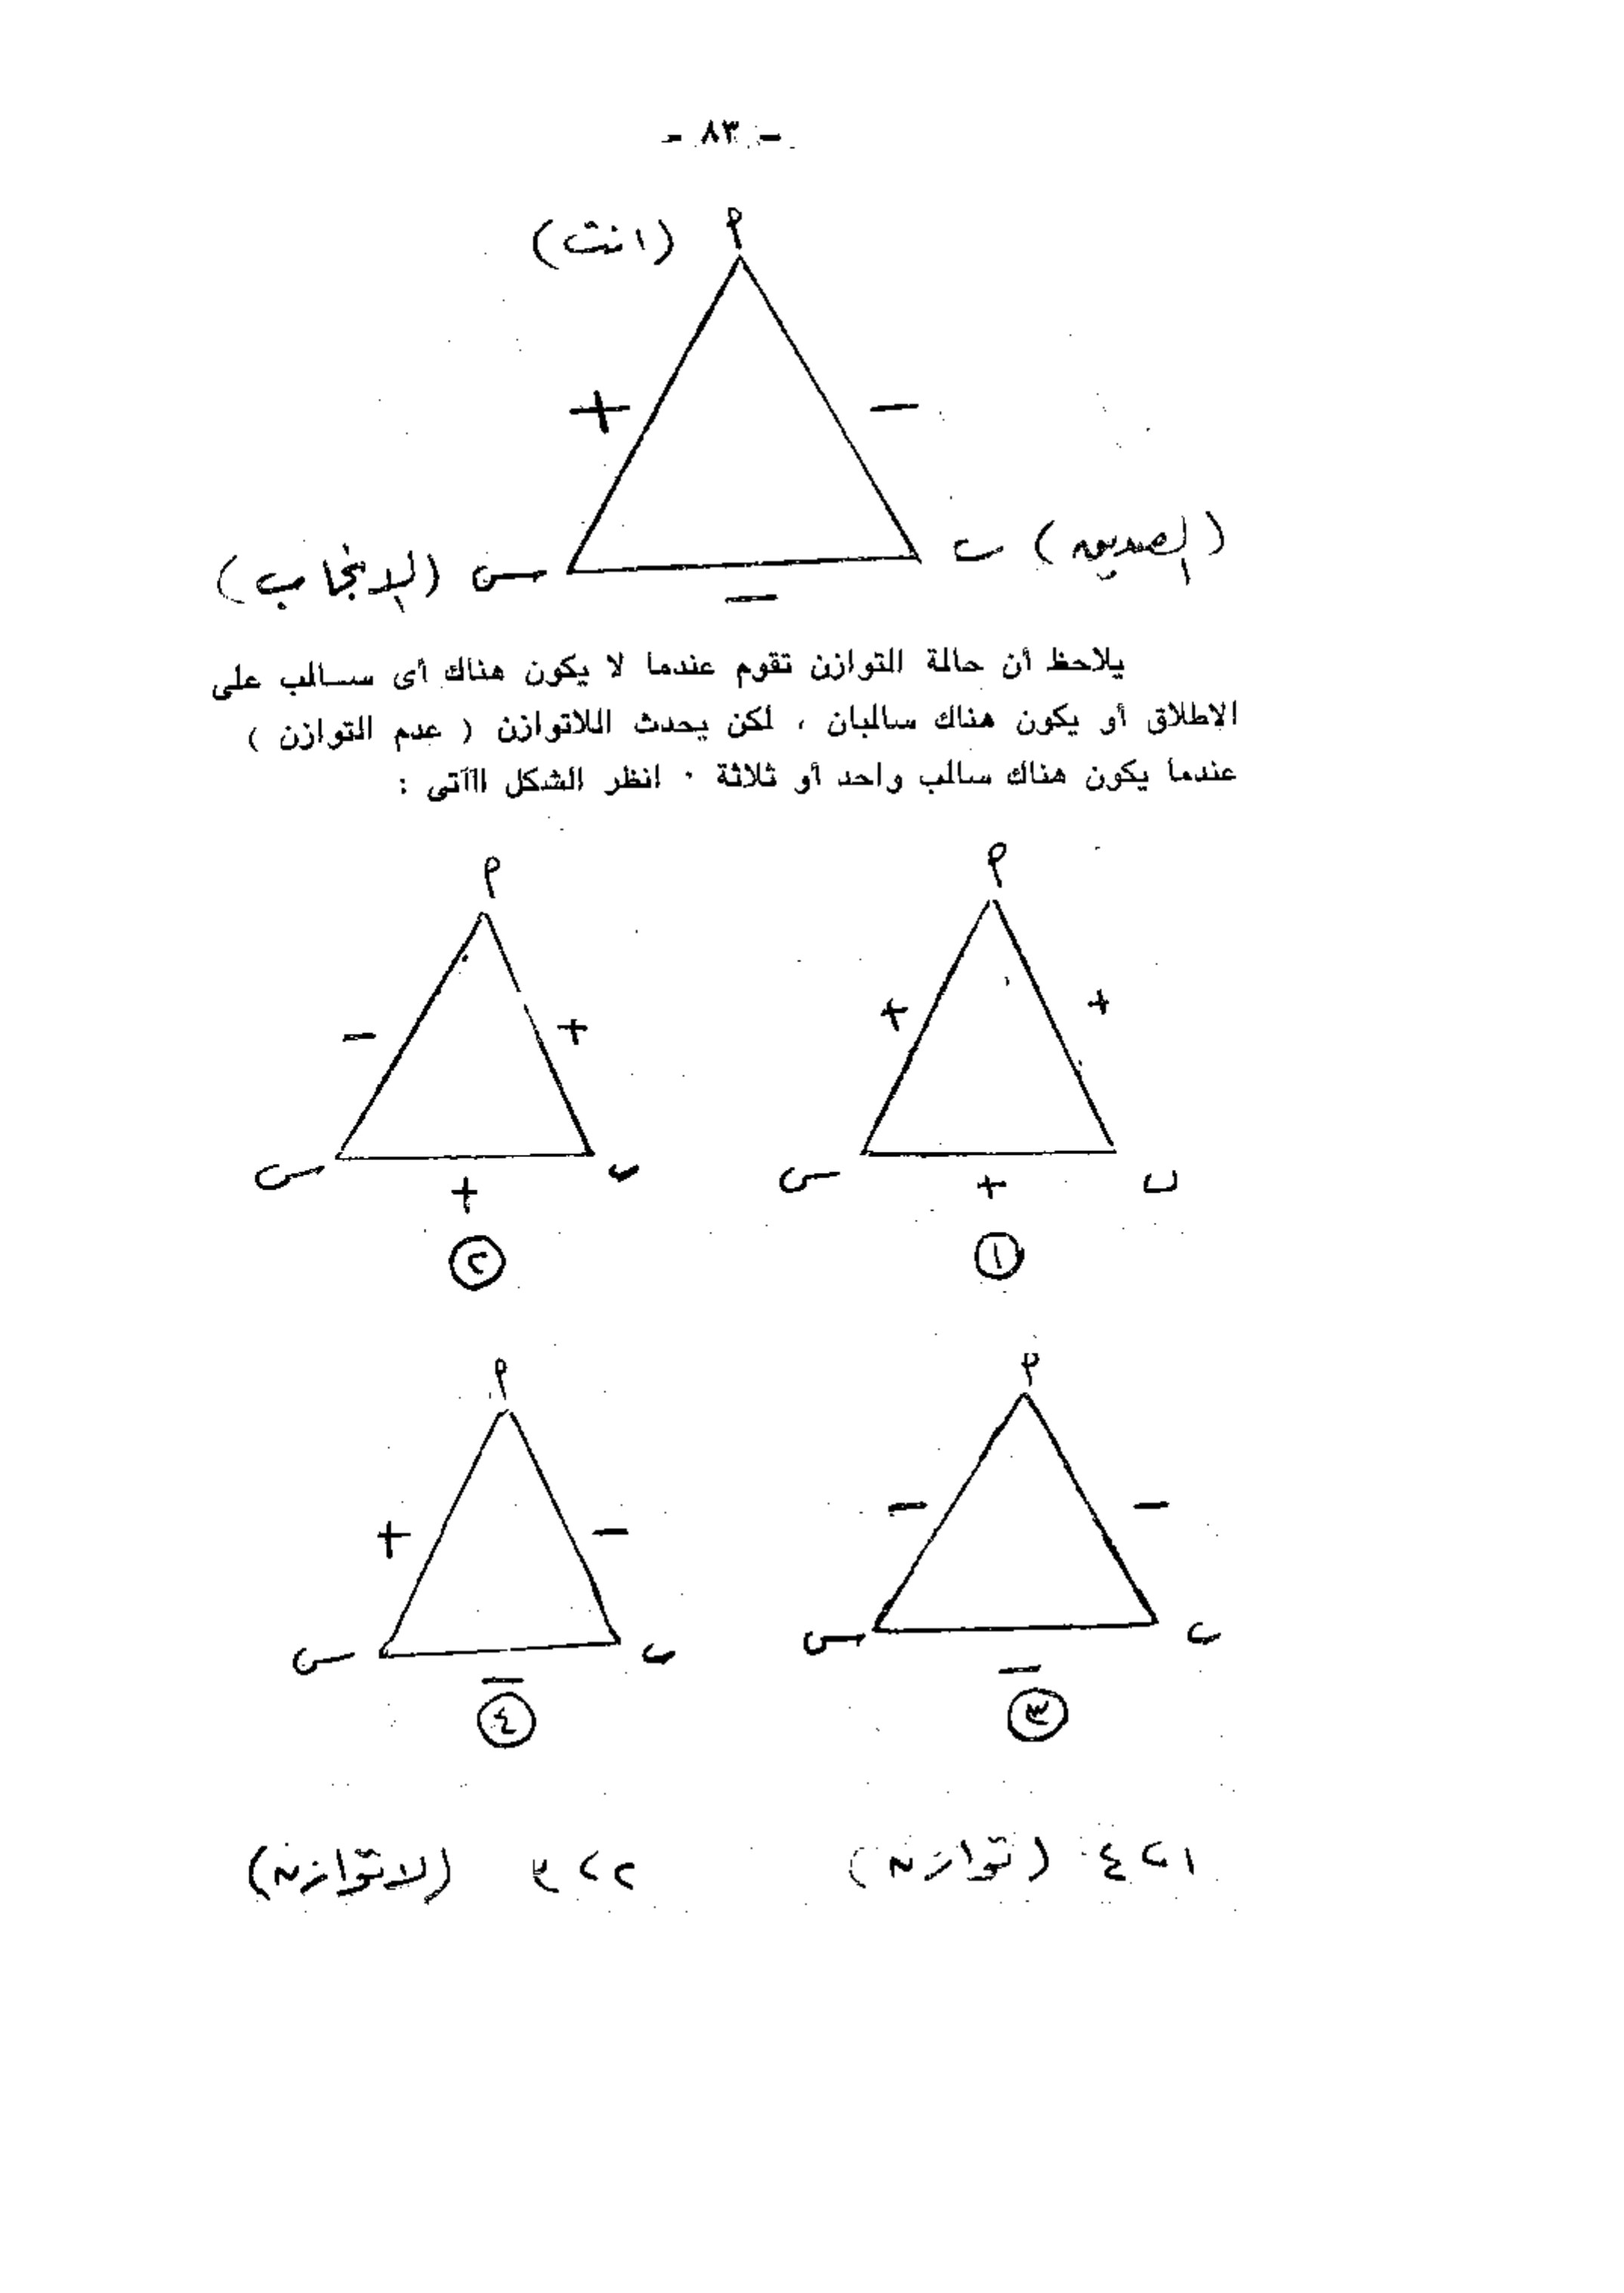 - ٨٣ -
م (انت)
+ -
(الصديق) ب س (الإنجاب)
-
يلاحظ أن حالة التوازن تقوم عندما لا يكون هناك أى سالب على
الاطلاق أو يكون هناك سالبان ، لكن يحدث اللاتوازن ( عدم التوازن )
عندما يكون هناك سالب واحد أو ثلاثة ٠ انظر الشكل الآتى :
م م
+ + + -
ب س ب س
+ +
١ ٢
م م
- - - +
ب س ب س
- -
٣ ٤
١، ٤ (توازن) ٢، ٣ (لا توازن)